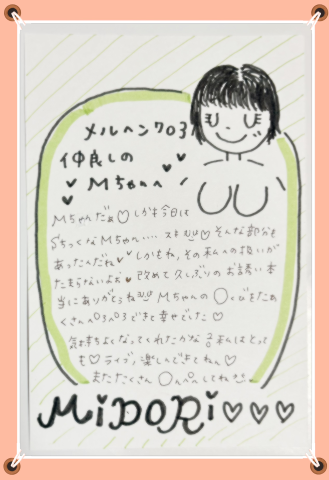 メルヘン703
仲良しの
Mちゃんへ
Mちゃんだぁ♡しかも今日は
Sちっくな Mちゃん‥‥ スキ♡そんな部分も
あったんだね しかもね、その私への扱いが
たまらないよぉ 改めて久しぶりのお誘い本
当にありがとうね Mちゃんの〇くびをたぁ
くさんペロペロできて幸せでした♡
気持ちよくなってくれたかな？私はとって
も♡ライブ楽しんできてねぇ♡
またたくさん〇ぺろしてね
MiDORi♡♡♡